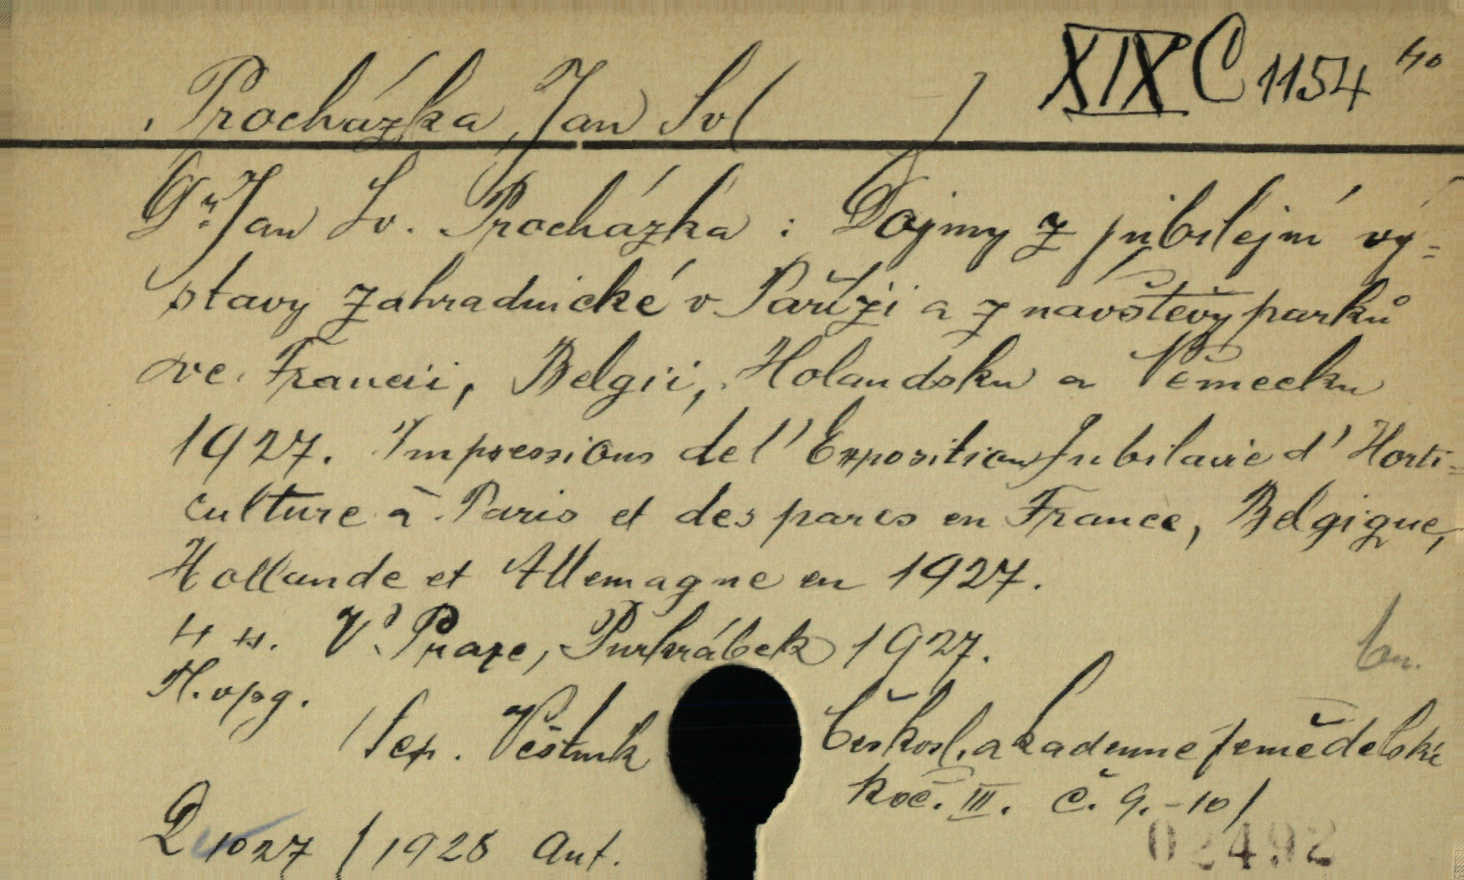 XIX C 1154 40
Procházka, Jan Sv( )
Dr Jan Sv. Procházka : Dojmy z jubilejní vý=
stavy zahradnické v Paříži a z návštěvy parků
ve Francii, Belgii, Holandsku a Německu
1927. Impressions de l'Exposition Jubilaire d'Horti=
culture à Paris et des parcs en France, Belgique,
Hollande et Allemagne en 1927.
V Praze, Purkrábek 1927.
/Sep. Věstník Českosl. akademie zemědělské
Roč. III. č. 9.-10/
1027 / 1928 Aut.
02492